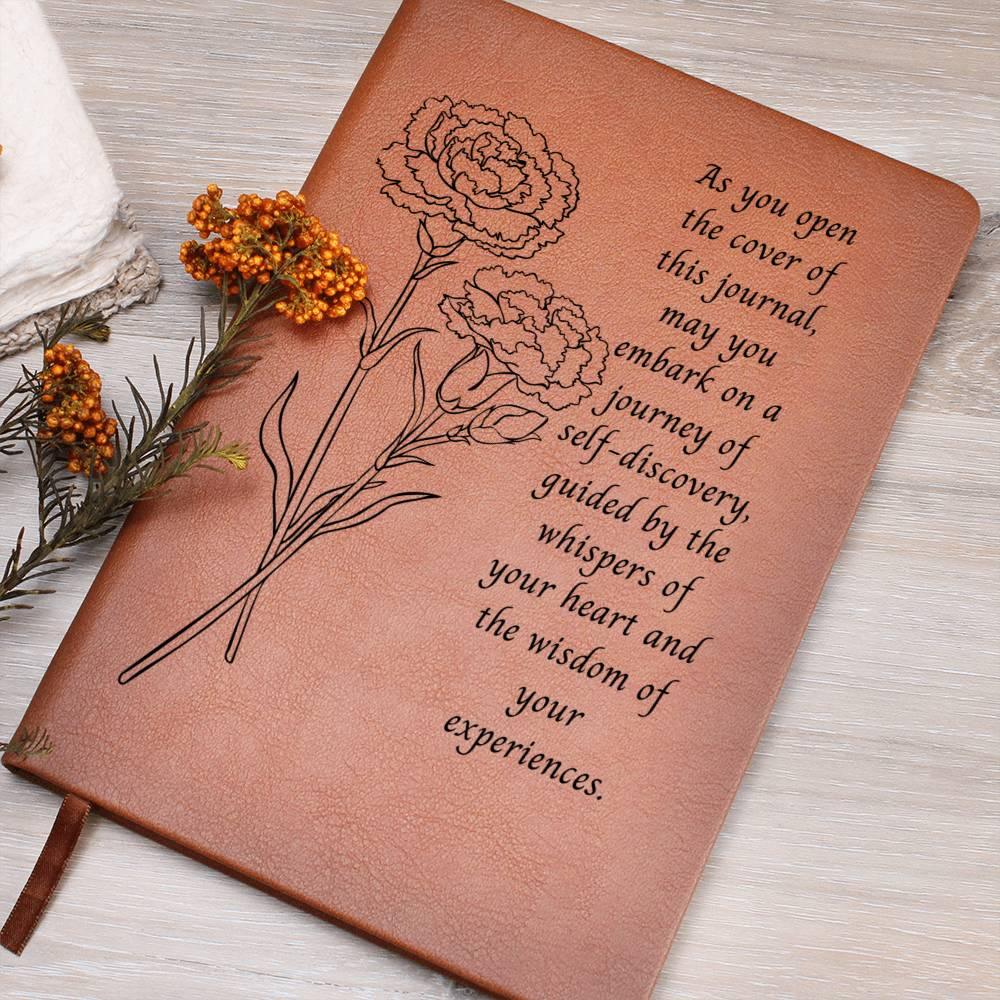 As you open
the cover of
this journal,
may you
embark on a
journey of
self-discovery,
guided by the
whispers of
your heart and
the wisdom of
your
experiences.